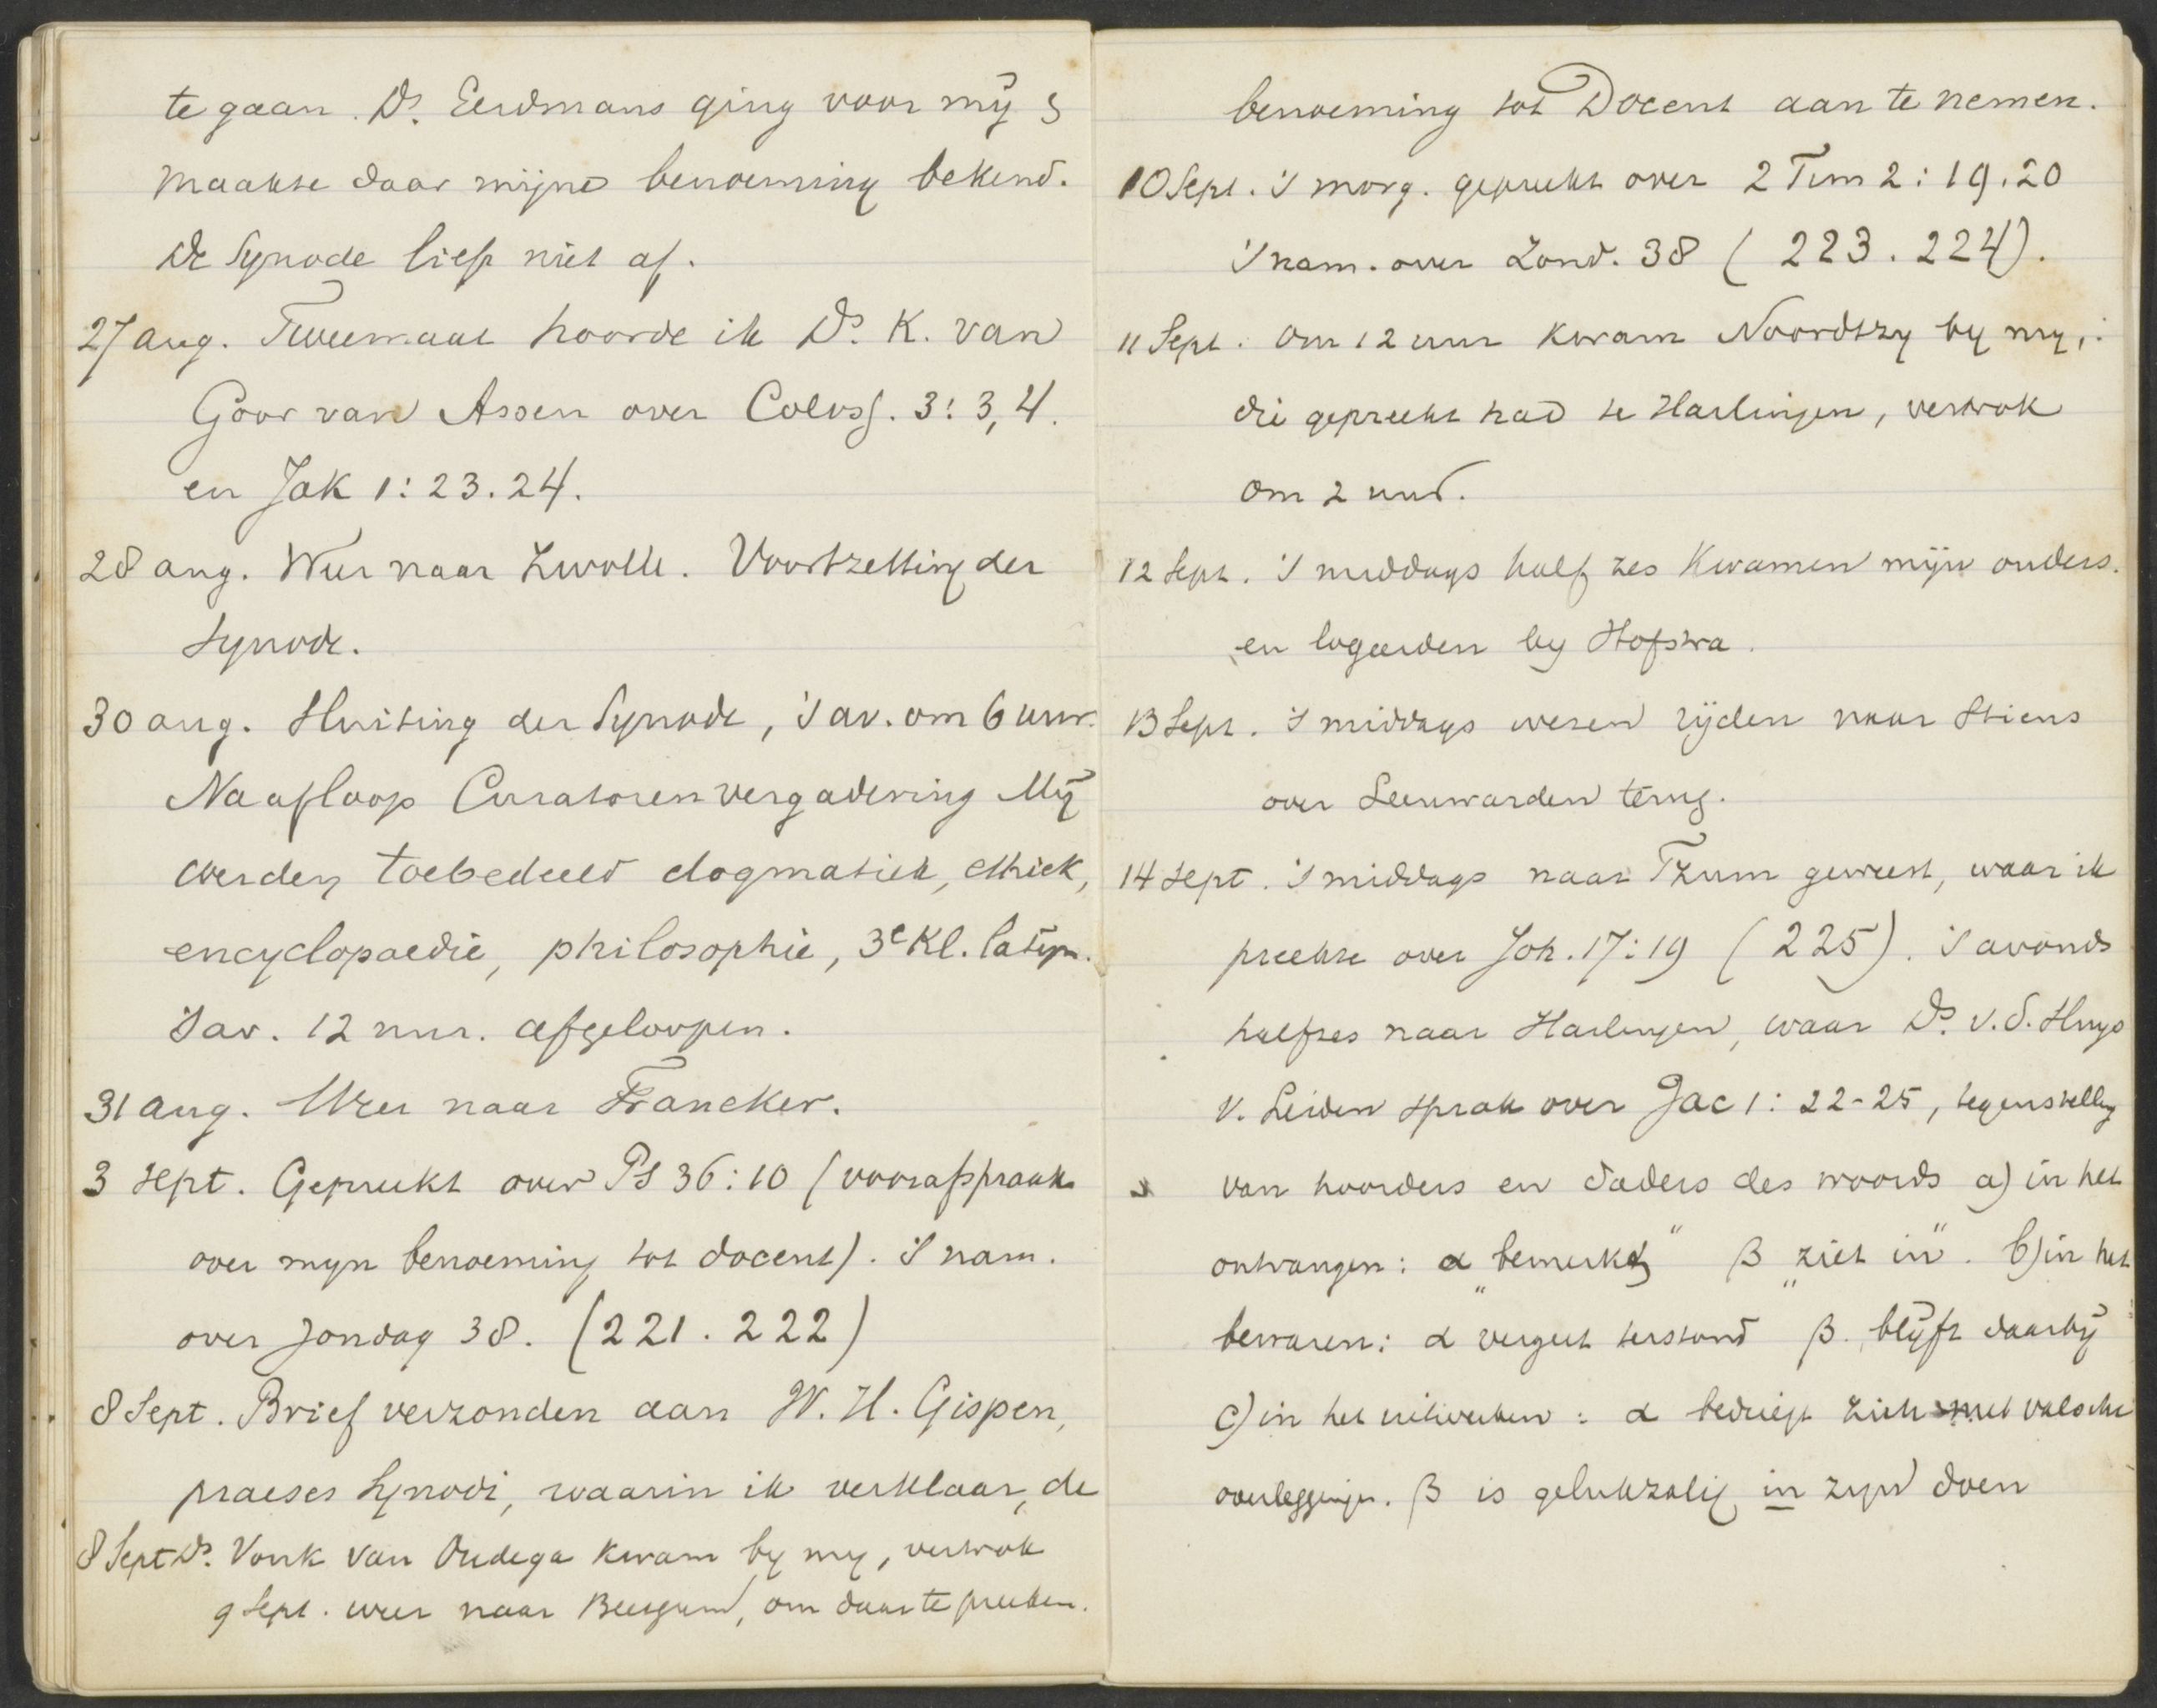 te gaan. Ds. Eerdmans ging voor mij &
maakte daar mijne benoeming bekend.
De Synode liep niet af.
27 Aug. Tweemaal hoorde ik Ds. K. van
Goor van Assen over Coloss. 3:3,4.
en Jak 1:23.24.
28 aug. Weer naar Zwolle. Voortzetting der
Synode.
30 aug. Sluiting der Synode, 's av. om 6 uur.
Na afloop Curatorenvergadering Mij
werden toebedeeld dogmatiek, ethiek,
encyclopaedie, philosophie, 3e Kl. latijn.
's av. 12 uur. afgeloopen.
31 aug. Weer naar Franeker.
3 Sept. Gepreekt over Ps 36:10 (voorafspraak
over mijn benoeming tot docent). 's nam.
over Zondag 38. (221. 222)
8 Sept. Brief verzonden aan W. H. Gispen,
praeses Synodi, waarin ik verklaar, de
8 Sept Ds. Vonk van Oudega kwam by my, vertrok
9 Sept. weer naar Beetgum, om daar te preeken.
benoeming tot Docent aan te nemen.
10 Sept. 's morg. gepreekt over 2 Tim 2:19.20
's nam. over Zond. 38 (223.224).
11 Sept. Om 12 uur kwam Noordtzy by my,
die gepreekt had te Harlingen, vertrok
om 2 uur.
12 Sept. 's middags half zes kwamen mijn ouders.
en logeerden by Hofstra.
13 Sept. 's middags wezen rijden naar Stiens
over Leeuwarden terug.
14 Sept. 's middags naar Tzum geweest, waar ik
preekte over Joh. 17:19 (225). 's avonds
halfzes naar Harlingen, waar Ds. v. d. Sluys
v. Leiden sprak over Jac 1:22-25, tegenstelling
van hoorders en daders des woords a) in het
ontvangen: α „bemerkt" β „ziet in". b) in het
bewaren: α vergeet terstond β. blijft daarbij
c) in het uitwerken: α bedriegt zich met valsche
overleggingen. β is gelukzalig in zijn doen